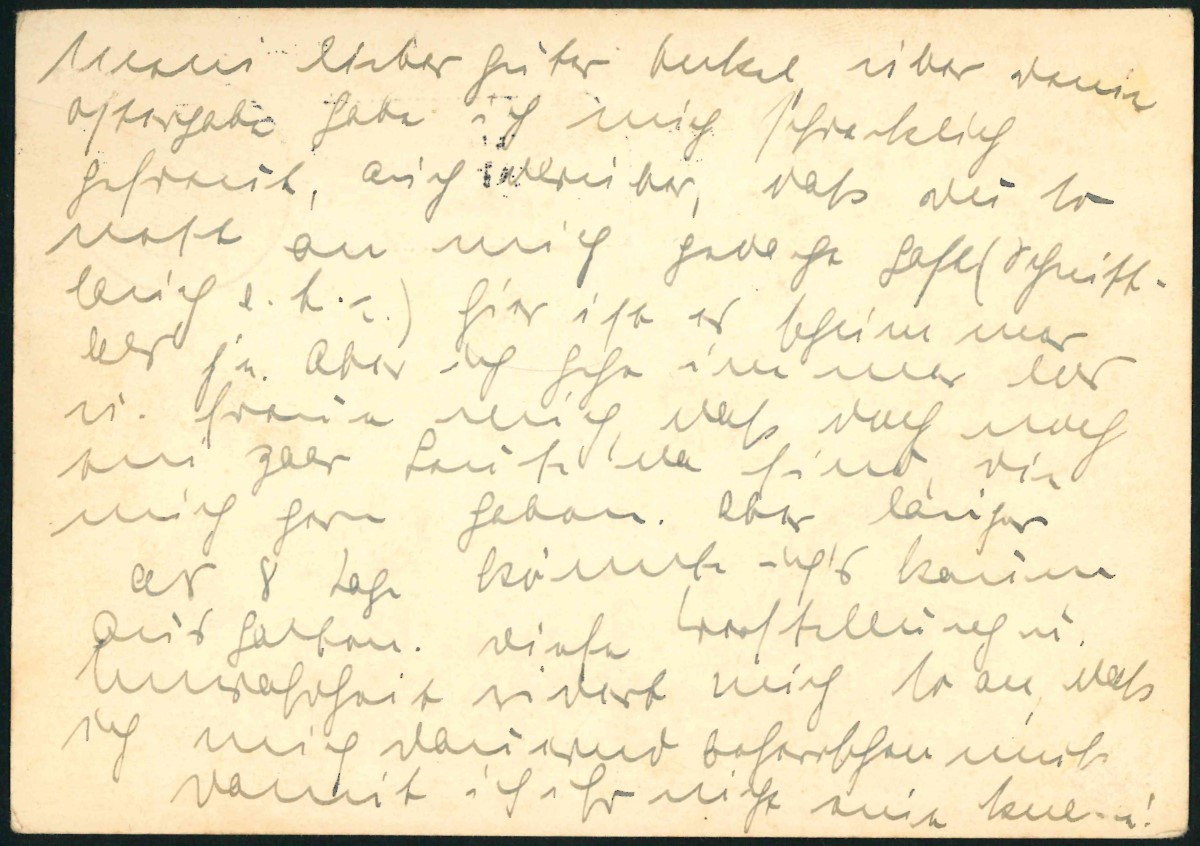 Mein lieber guter Onkel, über deine
Ostergabe habe ich mich schrecklich
gefreut, auch darüber, daß du so
nett an mich gedacht hast (Schnitt-
lauch e.t.c.) hier ist es schlimmer
als je. Aber ich sehe immer
u. freue mich, daß doch noch
ein paar Leute da sind, die
mich gern haben. Aber länger
als 8 Tage könnte ich's kaum
aushalten. Diese Verstellung u.
Unwahrheit widert mich so an, daß
ich mich dauernd beherrschen muß
damit ich ihr nicht eine knalle!